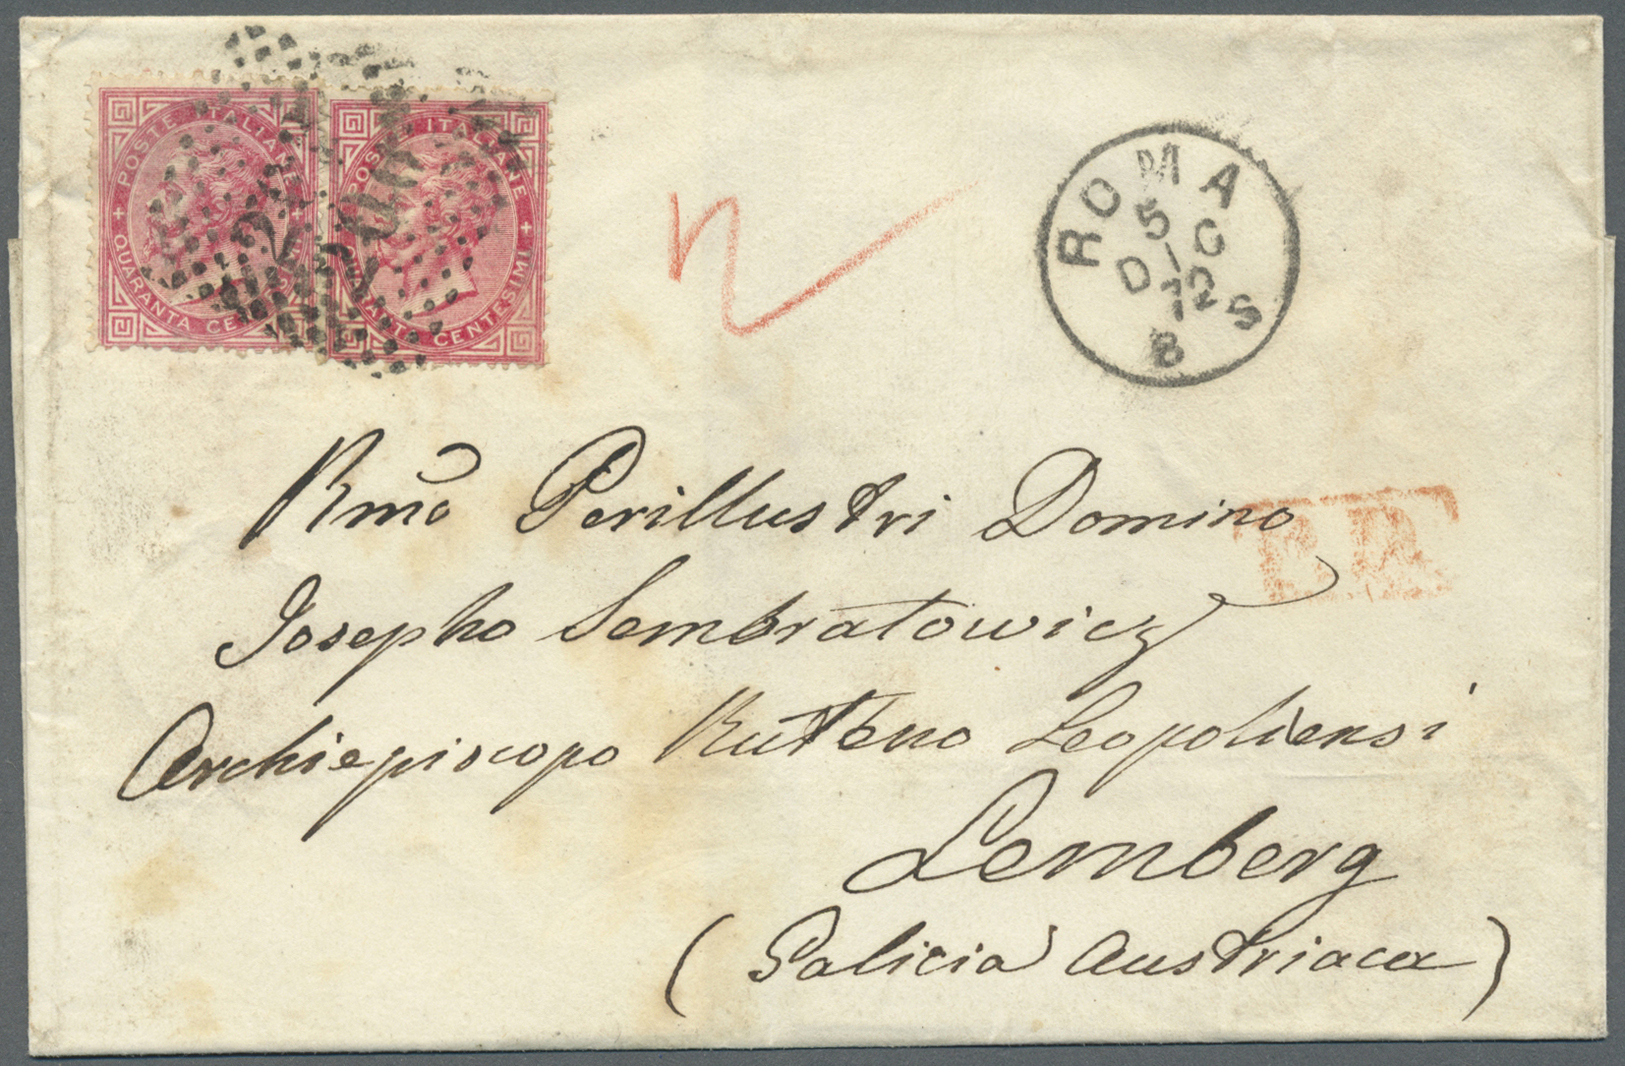 POSTE ITALIANE
QUARANTA CE
POSTE ITALIANE
CENTESIMI
207
ROMA
5
DIC
72
8 S
Rmõ Perillustri Domino
Josepho Sembratowicz
Archiepiscopo Rutheno Leopoliensi
Lemberg
(Galicia Austriaca)